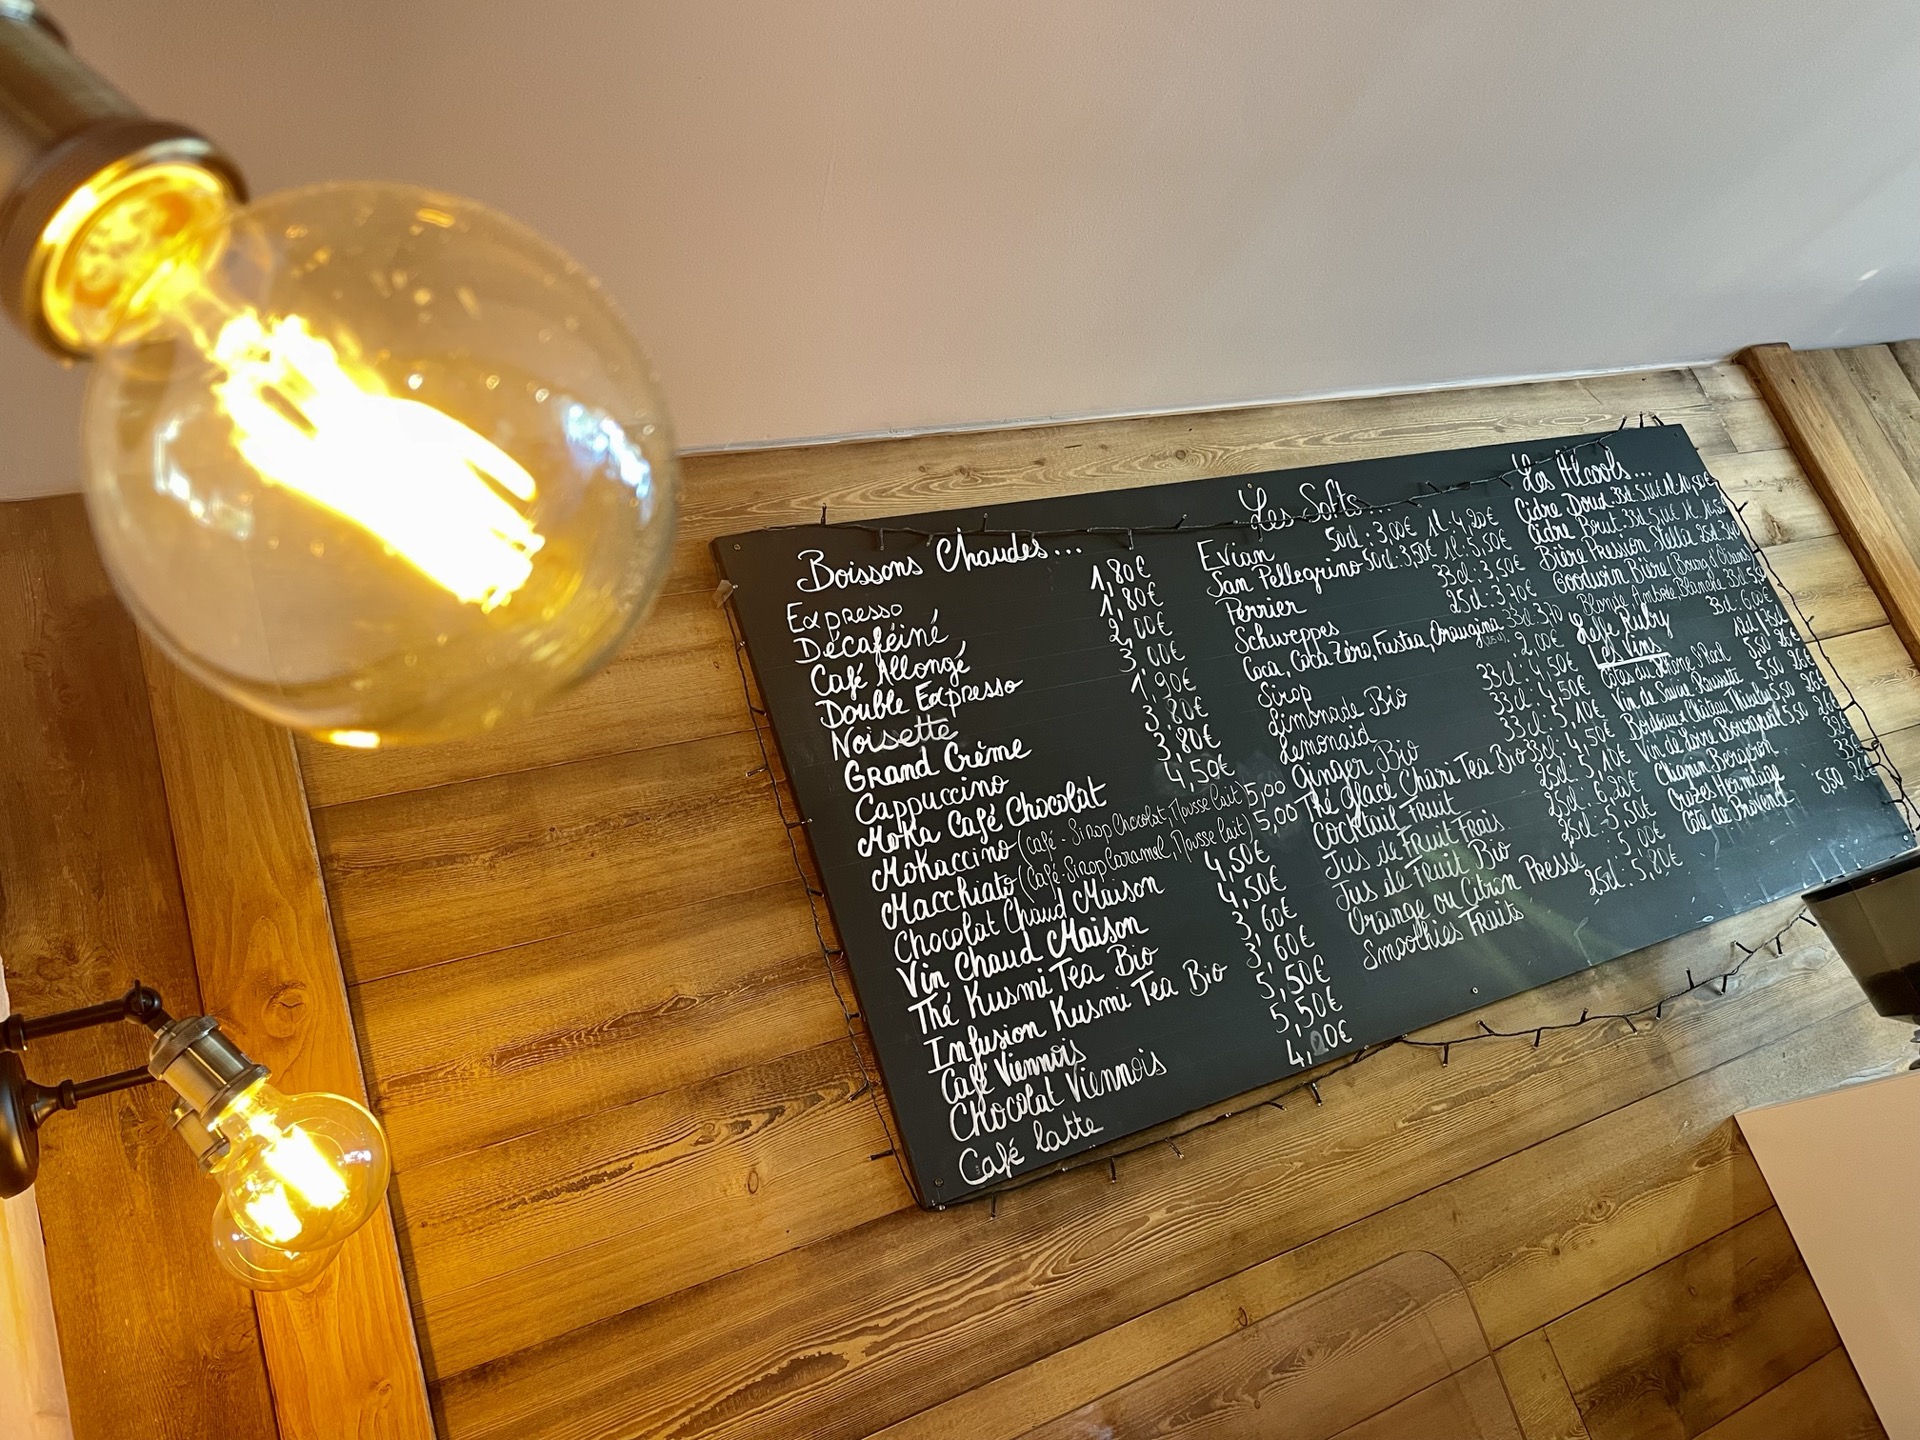 Boissons Chaudes...
Expresso 1,80€
Décaféiné 1,80€
Café Allongé 2,00€
Double Expresso 3,00€
Noisette 1,90€
Grand Crème 3,80€
Cappuccino 3,80€
Moka Café Chocolat 4,50€
Mokaccino (Café - Sirop Chocolat, Mousse lait) 5,00
Macchiato (Café - Sirop Caramel, Mousse lait) 5,00
Chocolat Chaud Maison 4,50€
Vin Chaud Maison 4,50€
Thé Kusmi Tea Bio 3,60€
Infusion Kusmi Tea Bio 3,60€
Café Viennois 5,50€
Chocolat Viennois 5,50€
Café latte 4,20€
Les Softs...
Evian 50cl: 3,00€ 1l: 4,20€
San Pellegrino 50cl: 3,50€ 1l: 5,50€
Perrier 33cl: 3,50€
Schweppes 25cl: 3,70€
Coca, Coca Zéro, Fustea, Orangina 33cl 3,70
Sirop 2,00€
Limonade Bio 33cl: 4,50€
Lemonaid 33cl: 4,50€
Ginger Bio 33cl: 5,10€
Thé Glacé Chari Tea Bio 33cl: 4,50€
Cocktail Fruit 25cl: 5,10€
Jus de Fruit Frais 25cl: 6,20€
Jus de Fruit Bio 25cl: 3,50€
Orange ou Citron Pressé 5,00€
Smoothies Fruits 25cl: 5,80€
Les Alcools...
Cidre Doux 33cl: 5,00€ 1l 10,50€
Cidre Brut 33cl 5,00€ 1l
Bière Pression Stella 25cl 3,40
Goodwin Bière (Bourg d'Oisans)
Blonde, Ambrée Blanche 33cl
Leffe Ruby 33cl: 6,00€
Les Vins 12cl 75cl
Côtes du Rhône 5,50
Vin de Savoie 5,50
Bordeaux Château 5,50
Vin de Loire Bourgueil 5,50
Chapin Bergeron
Crozes Hermitage
Côte de Provence 5,50